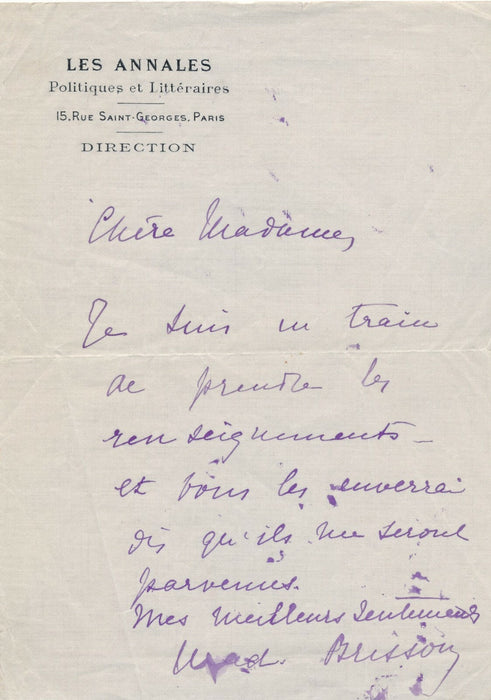 LES ANNALES
Politiques et Littéraires
15, RUE SAINT-GEORGES, PARIS
DIRECTION
Chère Madame,
Je suis en train
de prendre les
renseignements_
et vous les enverrai
dès qu'ils me seront
parvenus.
Mes meilleurs sentiments
Mad. Brisson